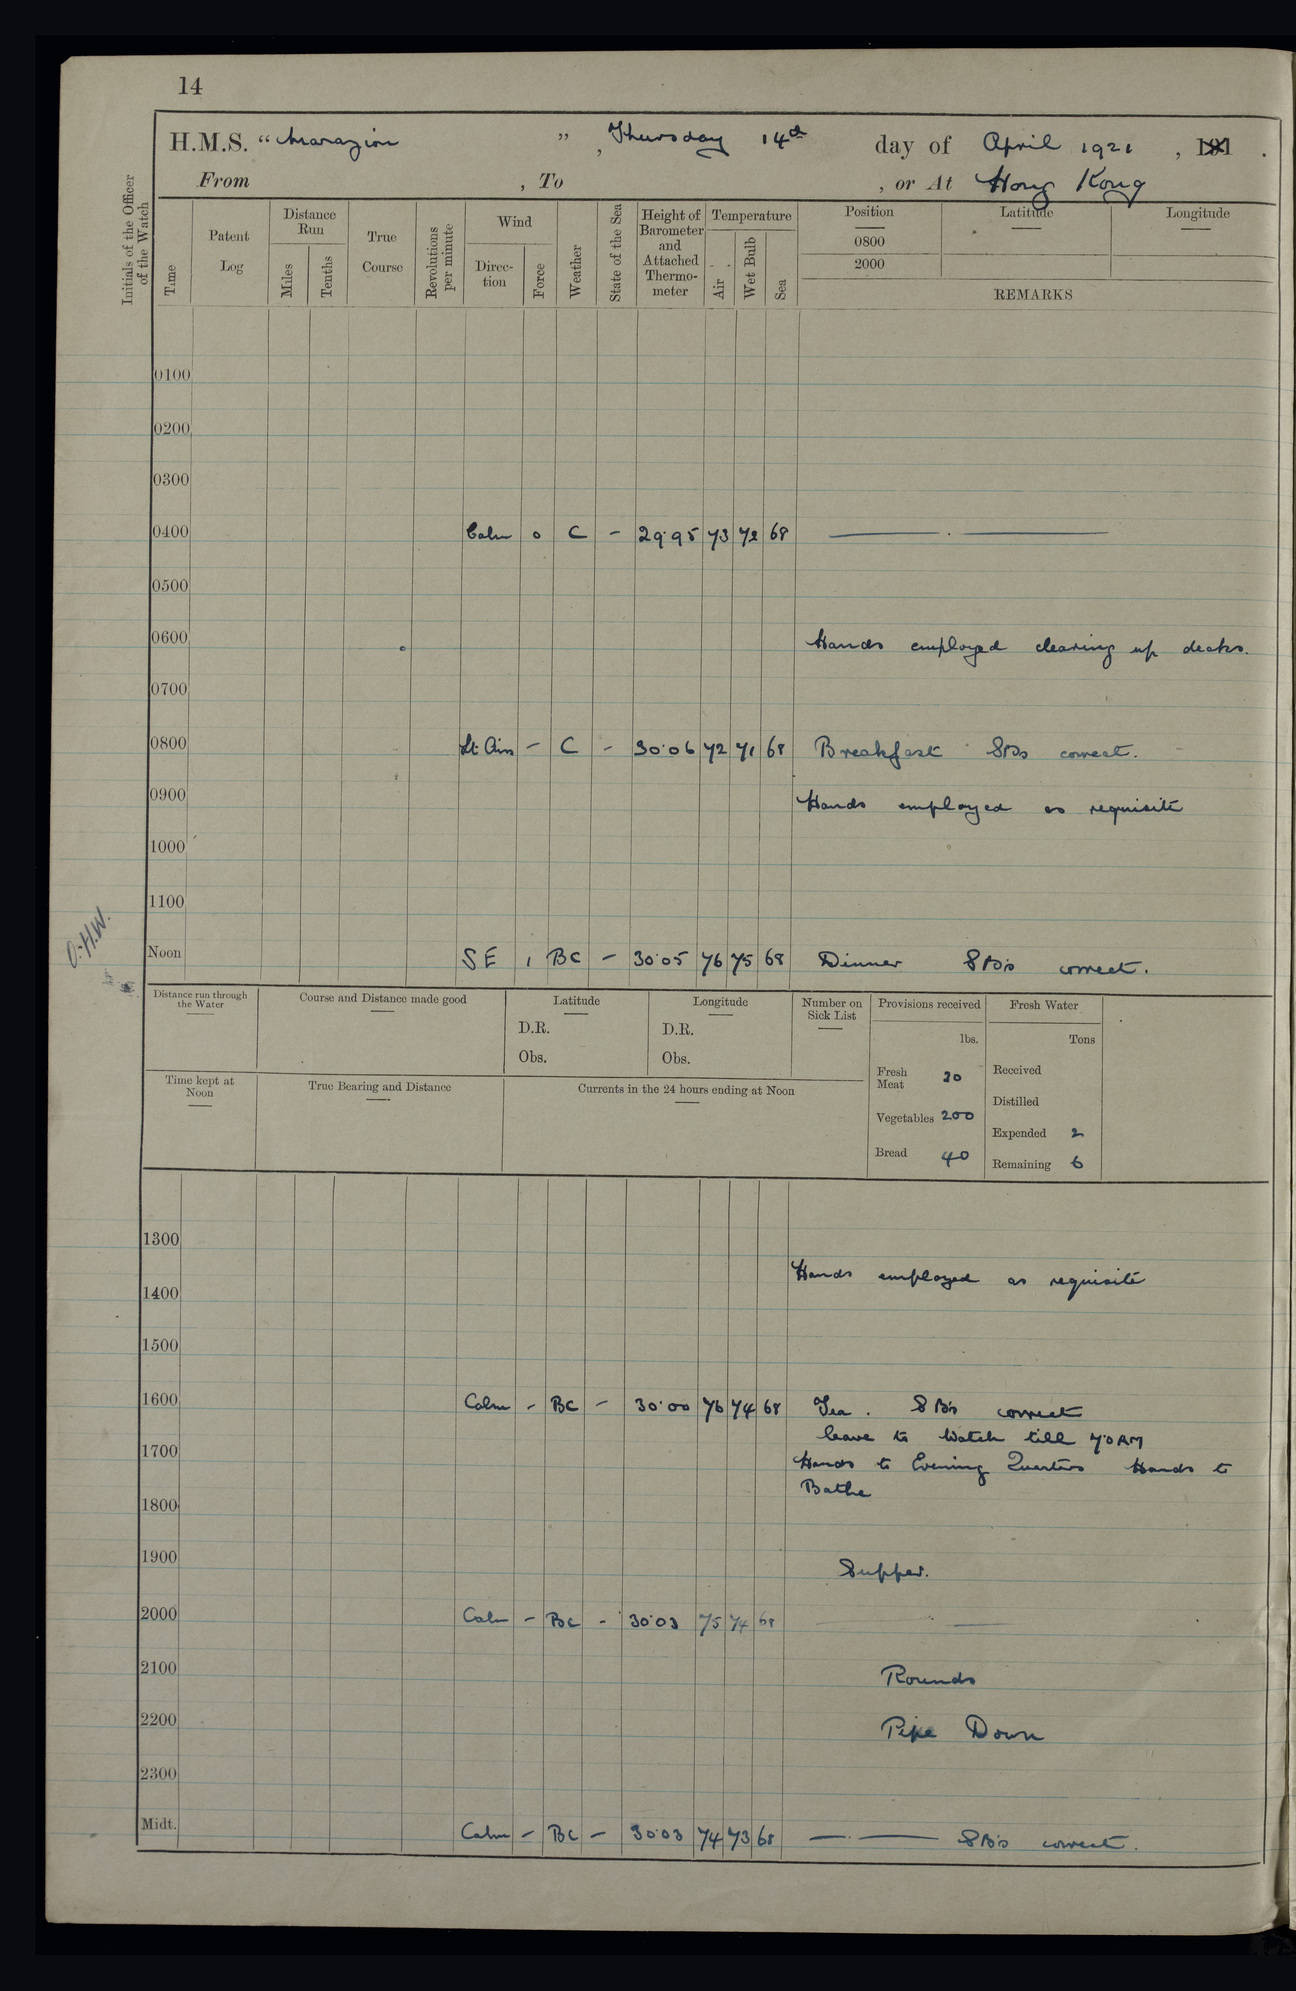 14
H.M.S. "Marazion", Thursday 14th day of April 1921, 191.
From , To , or At Hong Kong
Initials of the Officer of the Watch
Time
Patent Log
Distance Run
Miles
Tenths
True Course
Revolutions per minute
Wind
Direction
Force
Weather
State of the Sea
Height of Barometer and Attached Thermometer
Temperature
Air
Wet Bulb
Sea
Position Latitude Longitude
0800
2000
REMARKS
0100
0200
0300
0400 Calm 0 C - 29.95 73 72 68
0500
0600 Hands employed clearing up decks.
0700
0800 Lt Airs - C - 30.06 72 71 68 Breakfast SBs correct.
0900 Hands employed as requisite
1000
1100
O.H.W.
Noon SE 1 BC - 30.05 76 75 68 Dinner SB's correct.
Distance run through the Water
Course and Distance made good
Latitude
D.R.
Obs.
Longitude
D.R.
Obs.
Number on Sick List
Provisions received
lbs.
Fresh Meat 20
Vegetables 200
Bread 40
Fresh Water
Tons
Received
Distilled
Expended 2
Remaining 6
Time kept at Noon
True Bearing and Distance
Currents in the 24 hours ending at Noon
1300
Hands employed as requisite
1400
1500
1600 Calm - BC - 30.00 76 74 68 Tea. SB's correct
leave to Watch till 7.0 AM
1700 Hands to Evening Quarters Hands to
Bathe
1800
1900 Supper.
2000 Calm - BC - 30.03 75 74 68
2100 Rounds
2200 Pipe Down
2300
Midt. Calm - BC - 30.03 74 73 68 SB's correct.